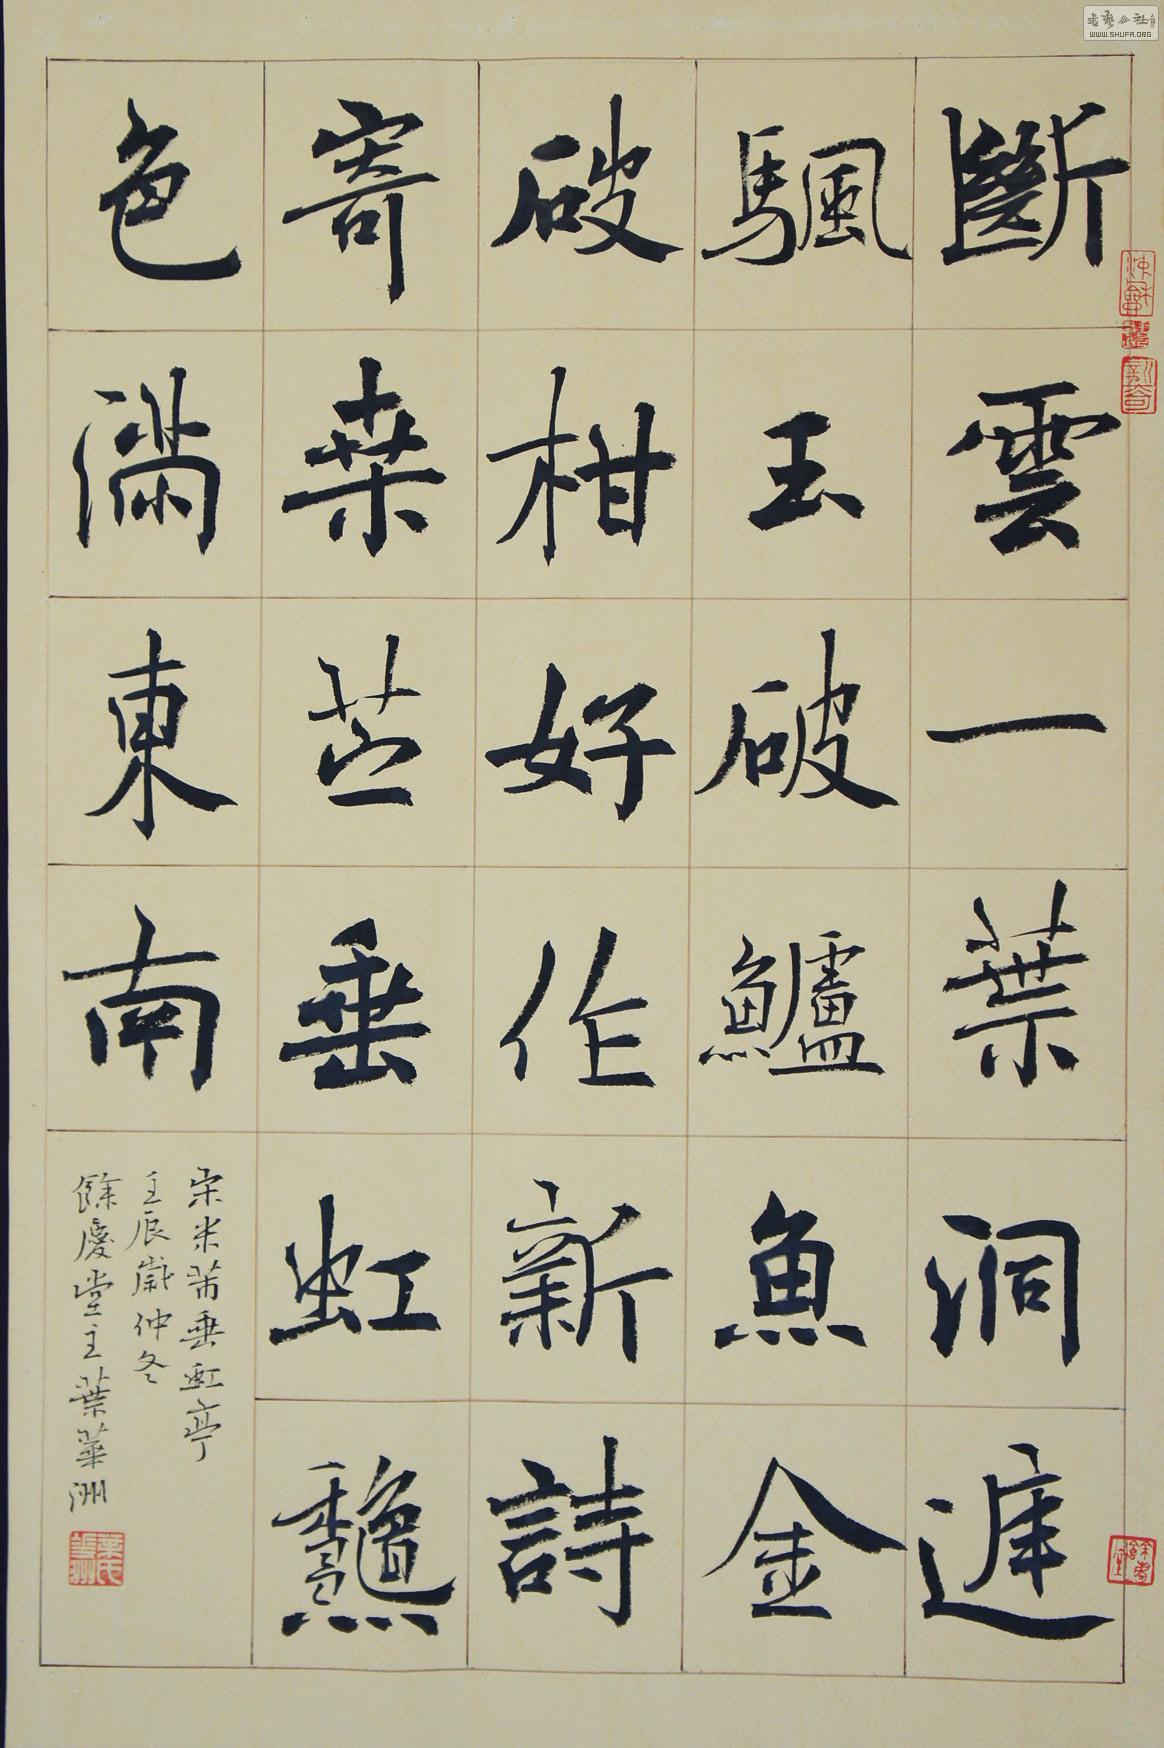 斷雲一葉洞庭
颿玉破鱸魚金
破柑好作新詩
寄桑苧垂虹龝
色滿東南
宋米芾垂虹亭
壬辰歲仲冬
餘慶堂主葉華洲
書藝公社
WWW.SHUFA.ORG